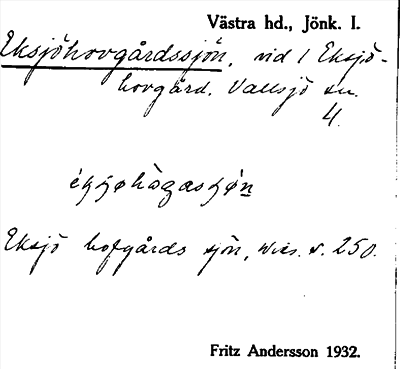 Västra hd., Jönk. l.
Eksjöhovgårdssjön, vid 1 Eksjö-
hovgård. Vallsjö sn.
4.
Eksjö hofgårds sjön, Wies. s. 250.
Fritz Andersson 1932.